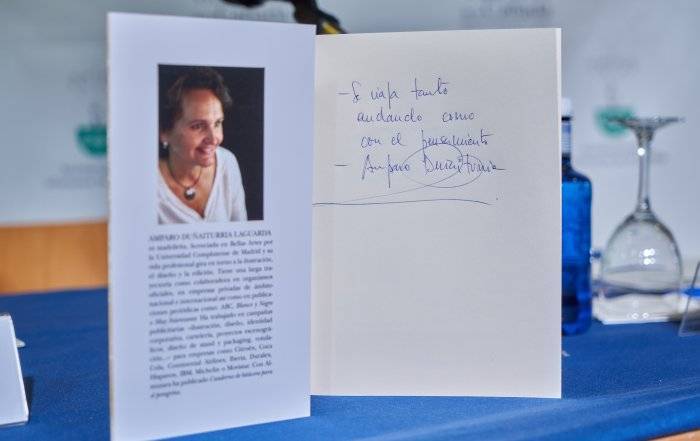 AMPARO DUÑAITURRIA LAGUARDA
es madrileña, licenciada en Bellas Artes por
la Universidad Complutense de Madrid y su
vida profesional gira en torno a la ilustración,
el diseño y la edición. Tiene una larga tra-
yectoria como colaboradora en organismos
oficiales, en empresas privadas de ámbito
nacional e internacional así como en publica-
ciones periódicas como: ABC, Blanco y Negro
o Muy Interesante. Ha trabajado en campañas
publicitarias –ilustración, diseño, identidad
corporativa, cartelería, proyectos escenográ-
ficos, diseño de stand y packaging, rotula-
ción...– para empresas como Citroën, Coca
Cola, Continental Airlines, Iberia, Duralex,
Hispavox, IBM, Michelin o Morata: Con Al-
muzara ha publicado Cuaderno de bitácora para
el peregrino.
– Se viaja tanto
andando como
con el pensamiento
– Amparo Duñaiturria